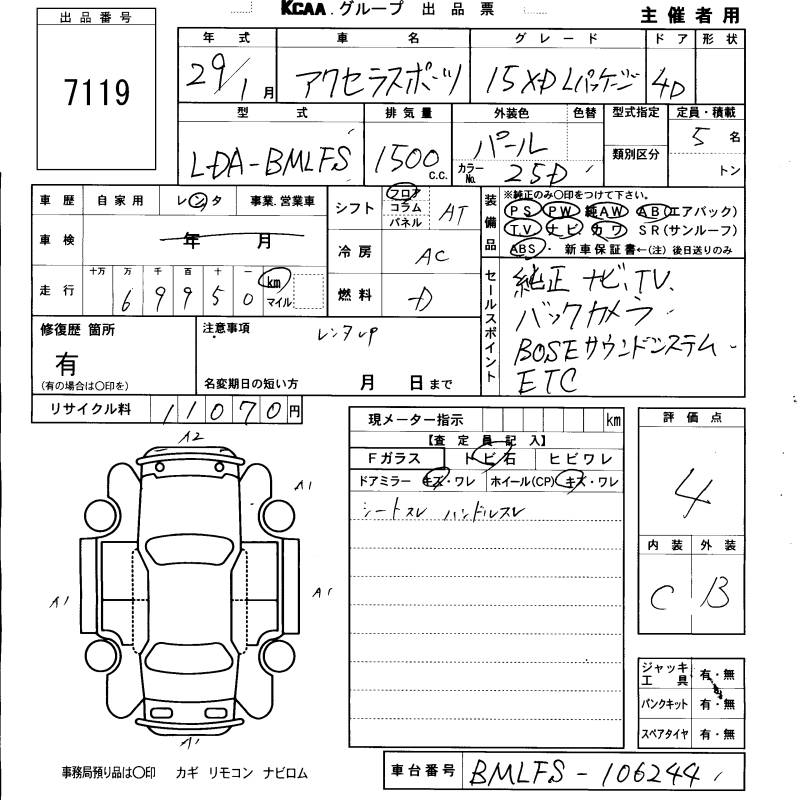 KCAA.グループ 出品票
主催者用
出品番号
7119
年式 車名 グレード ドア 形状
29/1月 アクセラスポーツ 15XD Lパッケージ 4D
型式 排気量 外装色 色替 型式指定 定員・積載
LDA-BMLFS 1500 c.c. パール 5名
カラーNo. 25D 類別区分 トン
車歴 自家用 レンタ 事業.営業車
シフト フロア コラム パネル AT
装備品 ※純正のみ〇印をつけて下さい。
PS PW 純AW AB(エアバック)
TV ナビ カワ SR(サンルーフ)
ABS・ 新車保証書←(注)後日送りのみ
車検 年 月
冷房 AC
走行 十万 万 千 百 十 一 km マイル
69950
燃料 D
セールスポイント
純正ナビ、TV.
バックカメラ
BOSEサウンドシステム
ETC
修復歴 箇所
有
(有の場合は〇印を)
注意事項 レンタup
名変期日の短い方 月 日まで
リサイクル料 11070円
現メーター指示 km
【査定員記入】
Fガラス トビ石 ヒビワレ
ドアミラー キズ・ワレ ホイール(CP) キズ・ワレ
シートスレ ハンドルスレ
評価点
4
内装 外装
C B
A2
A1
A1
A1
A1
ジャッキ工具 有・無
パンクキット 有・無
スペアタイヤ 有・無
事務局預り品は〇印 カギ リモコン ナビロム
車台番号 BMLFS-106244